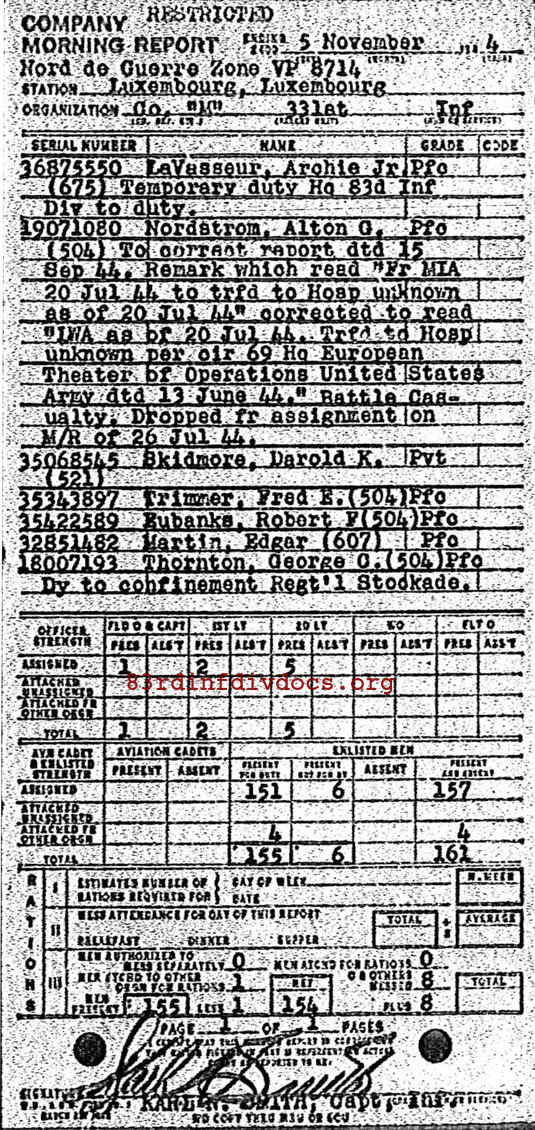 RESTRICTED
COMPANY
MORNING REPORT ENDING 5 November 4
Nord de Guerre Zone VP 8714
STATION Luxembourg, Luxembourg
ORGANIZATION Co. "M" 331st Inf
SERIAL NUMBER NAME GRADE CODE
36875550 LaVasseur, Archie Jr Pfc
(675) Temporary duty Hq 83d Inf
Div to duty.
19071080 Nordstrom, Alton G. Pfc
(504) To correct report dtd 15
Sep 44. Remark which read "Fr MIA
20 Jul 44 to trfd to Hosp unknown
as of 20 Jul 44" corrected to read
"LWA as of 20 Jul 44. Trfd to Hosp
unknown per cir 69 Hq European
Theater of Operations United States
Army dtd 13 June 44." Battle Cas-
ualty. Dropped fr assignment on
M/R of 26 Jul 44.
35068545 Skidmore, Darold K. Pvt
(521)
35343897 Trimmer, Fred E.(504)Pfc
35422589 Eubanks, Robert F(504)Pfc
32851482 Martin, Edgar (607) Pfc
18007193 Thornton, George C.(504)Pfc
Dy to confinement Regt'l Stockade.
OFFICER STRENGTH FLD O & CAPT 1ST LT 2D LT WO FLT O
PRES ABS'T PRES ABS'T PRES ABS'T PRES ABS'T PRES ABS'T
ASSIGNED 1 2 5
ATTACHED UNASSIGNED
83rdinfdivdocs.org
ATTACHED FR OTHER ORGN
TOTAL 1 2 5
AVN CADET & ENLISTED STRENGTH AVIATION CADETS ENLISTED MEN
PRESENT ABSENT PRESENT FOR DUTY PRESENT NOT FOR DY ABSENT PRESENT AND ABSENT
ASSIGNED 151 6 157
ATTACHED UNASSIGNED
ATTACHED FR OTHER ORGN 4 4
TOTAL 155 6 161
RATIONS
I ESTIMATED NUMBER OF RATIONS REQUIRED FOR DAY OF WEEK DATE
II MESS ATTENDANCE FOR DAY OF THIS REPORT TOTAL AVERAGE
BREAKFAST DINNER SUPPER
III MEN AUTHORIZED TO MESS SEPARATELY 0 MEN ATCHD FOR RATIONS 0
MEN ATCHD TO OTHER ORGN FOR RATIONS 1 NET OTHERS MESSED 8 TOTAL
MEN PRESENT 155 LESS 1 154 PLUS 8
PAGE 1 OF 1 PAGES
SIGNATURE
SMITH, Capt, Inf.